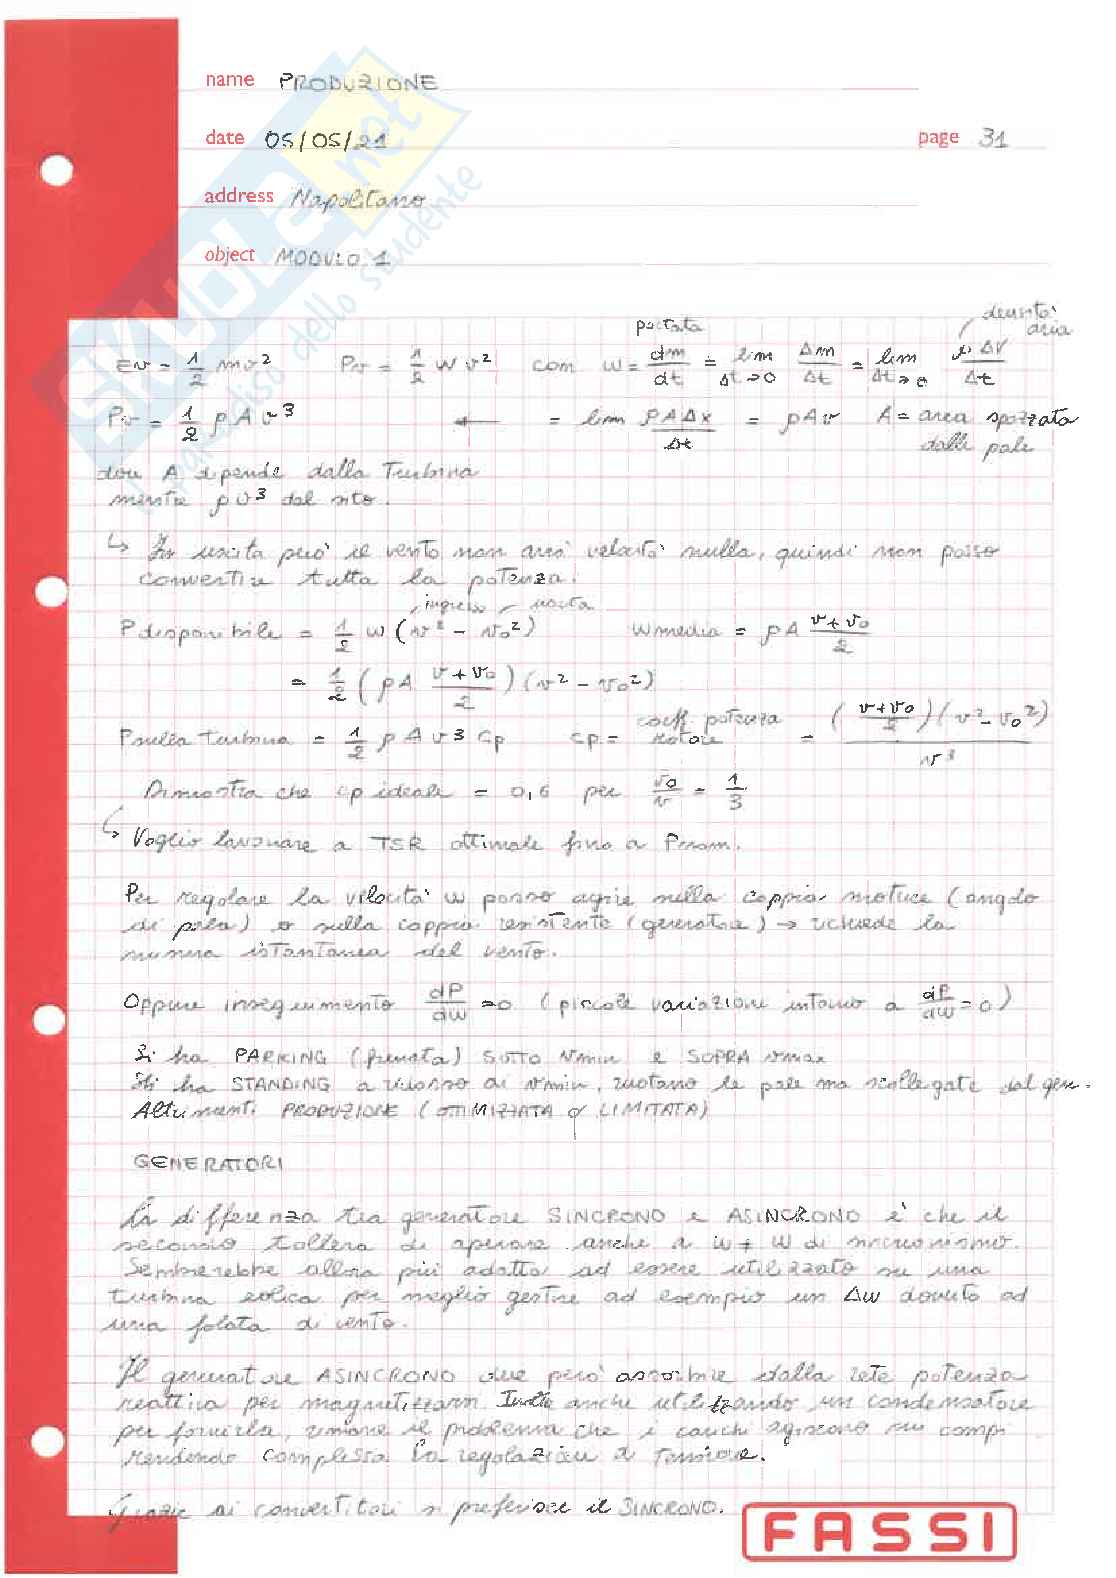 name PRODUZIONE
date 05/05/21 page 31
address Napolitano
object MODULO 1
SKUOLA.net
paradiso dello studente
portata densità aria
Ev = 1/2 m v² Pv = 1/2 w v² con w = dm/dt = lim Δt→0 Δm/Δt = lim Δt→0 ρ ΔV/Δt
Pv = 1/2 ρ A v³ ← = lim ρAΔx/Δt = ρAv A = area spazzata
dalle pale
dove A dipende dalla Turbina
mentre ρ v³ dal sito.
↳ In uscita però il vento non avrà velocità nulla, quindi non posso
convertire tutta la potenza.
ingresso uscita
Pdisponibile = 1/2 w (v² - v₀²) wmedia = ρA (v+v₀)/2
= 1/2 (ρA (v+v₀)/2)(v² - v₀²)
Psulla turbina = 1/2 ρ A v³ Cp cp = coeff. potenza rotore = ((v+v₀)/2)(v² - v₀²)/v³
Dimostra che cp ideale = 0,6 per v₀/v = 1/3
↳ Voglio lavorare a TSR ottimale fino a Pnom.
Per regolare la velocità w posso agire sulla coppia motrice (angolo
di pala) o sulla coppia resistente (generatore) → richiede la
misura istantanea del vento.
Oppure inseguimento dP/dw = 0 (piccole variazioni intorno a dP/dw = 0)
Si ha PARKING (frenata) SOTTO vmin e SOPRA vmax
Si ha STANDING a ridosso di vmin, ruotano le pale ma scollegate dal gen.
Altrimenti PRODUZIONE (OTTIMIZZATA o LIMITATA)
GENERATORI
La differenza tra generatore SINCRONO e ASINCRONO è che il
secondo tollera di operare anche a w ≠ w di sincronismo.
Sembrerebbe allora più adatto ad essere utilizzato su una
turbina eolica per meglio gestire ad esempio un Δw dovuto ad
una folata di vento.
Il generatore ASINCRONO deve però assorbire dalla rete potenza
reattiva per magnetizzarsi. Inoltre anche utilizzando un condensatore
per fornirla rimane il problema che i carichi agiscono sui campi
rendendo complessa la regolazione di tensione.
Grazie ai convertitori si preferisce il SINCRONO.
FASSI